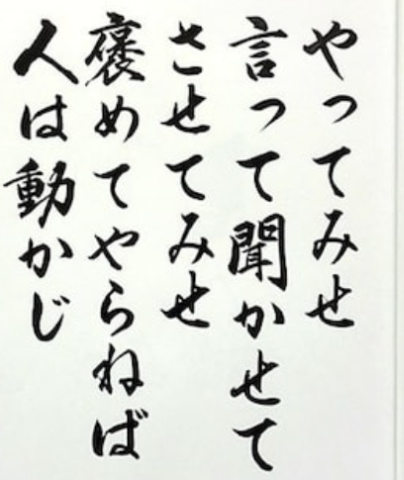 やってみせ
言って聞かせて
させてみせ
褒めてやらねば
人は動かじ